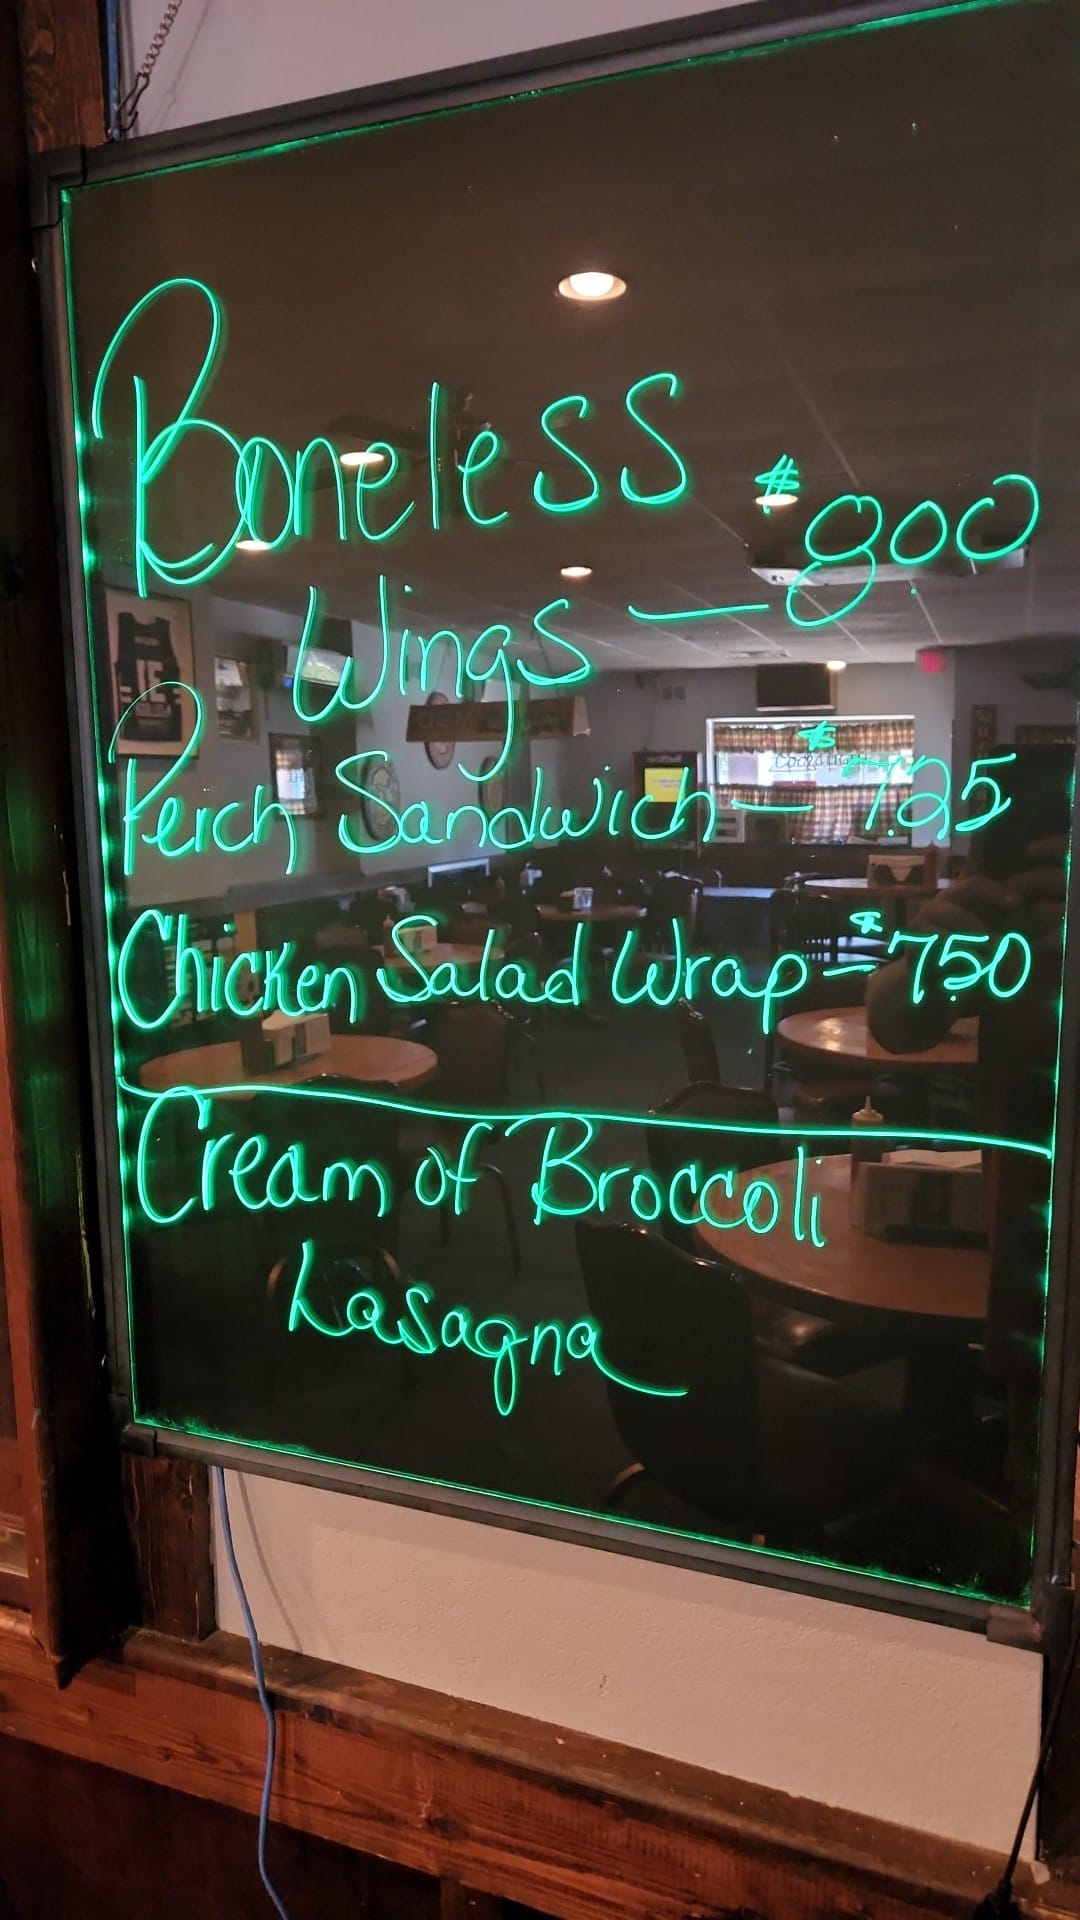 Boneless
Wings — $8.00
Perch Sandwich — $7.25
Chicken Salad Wrap — $7.50
Cream of Broccoli
Lasagna
15